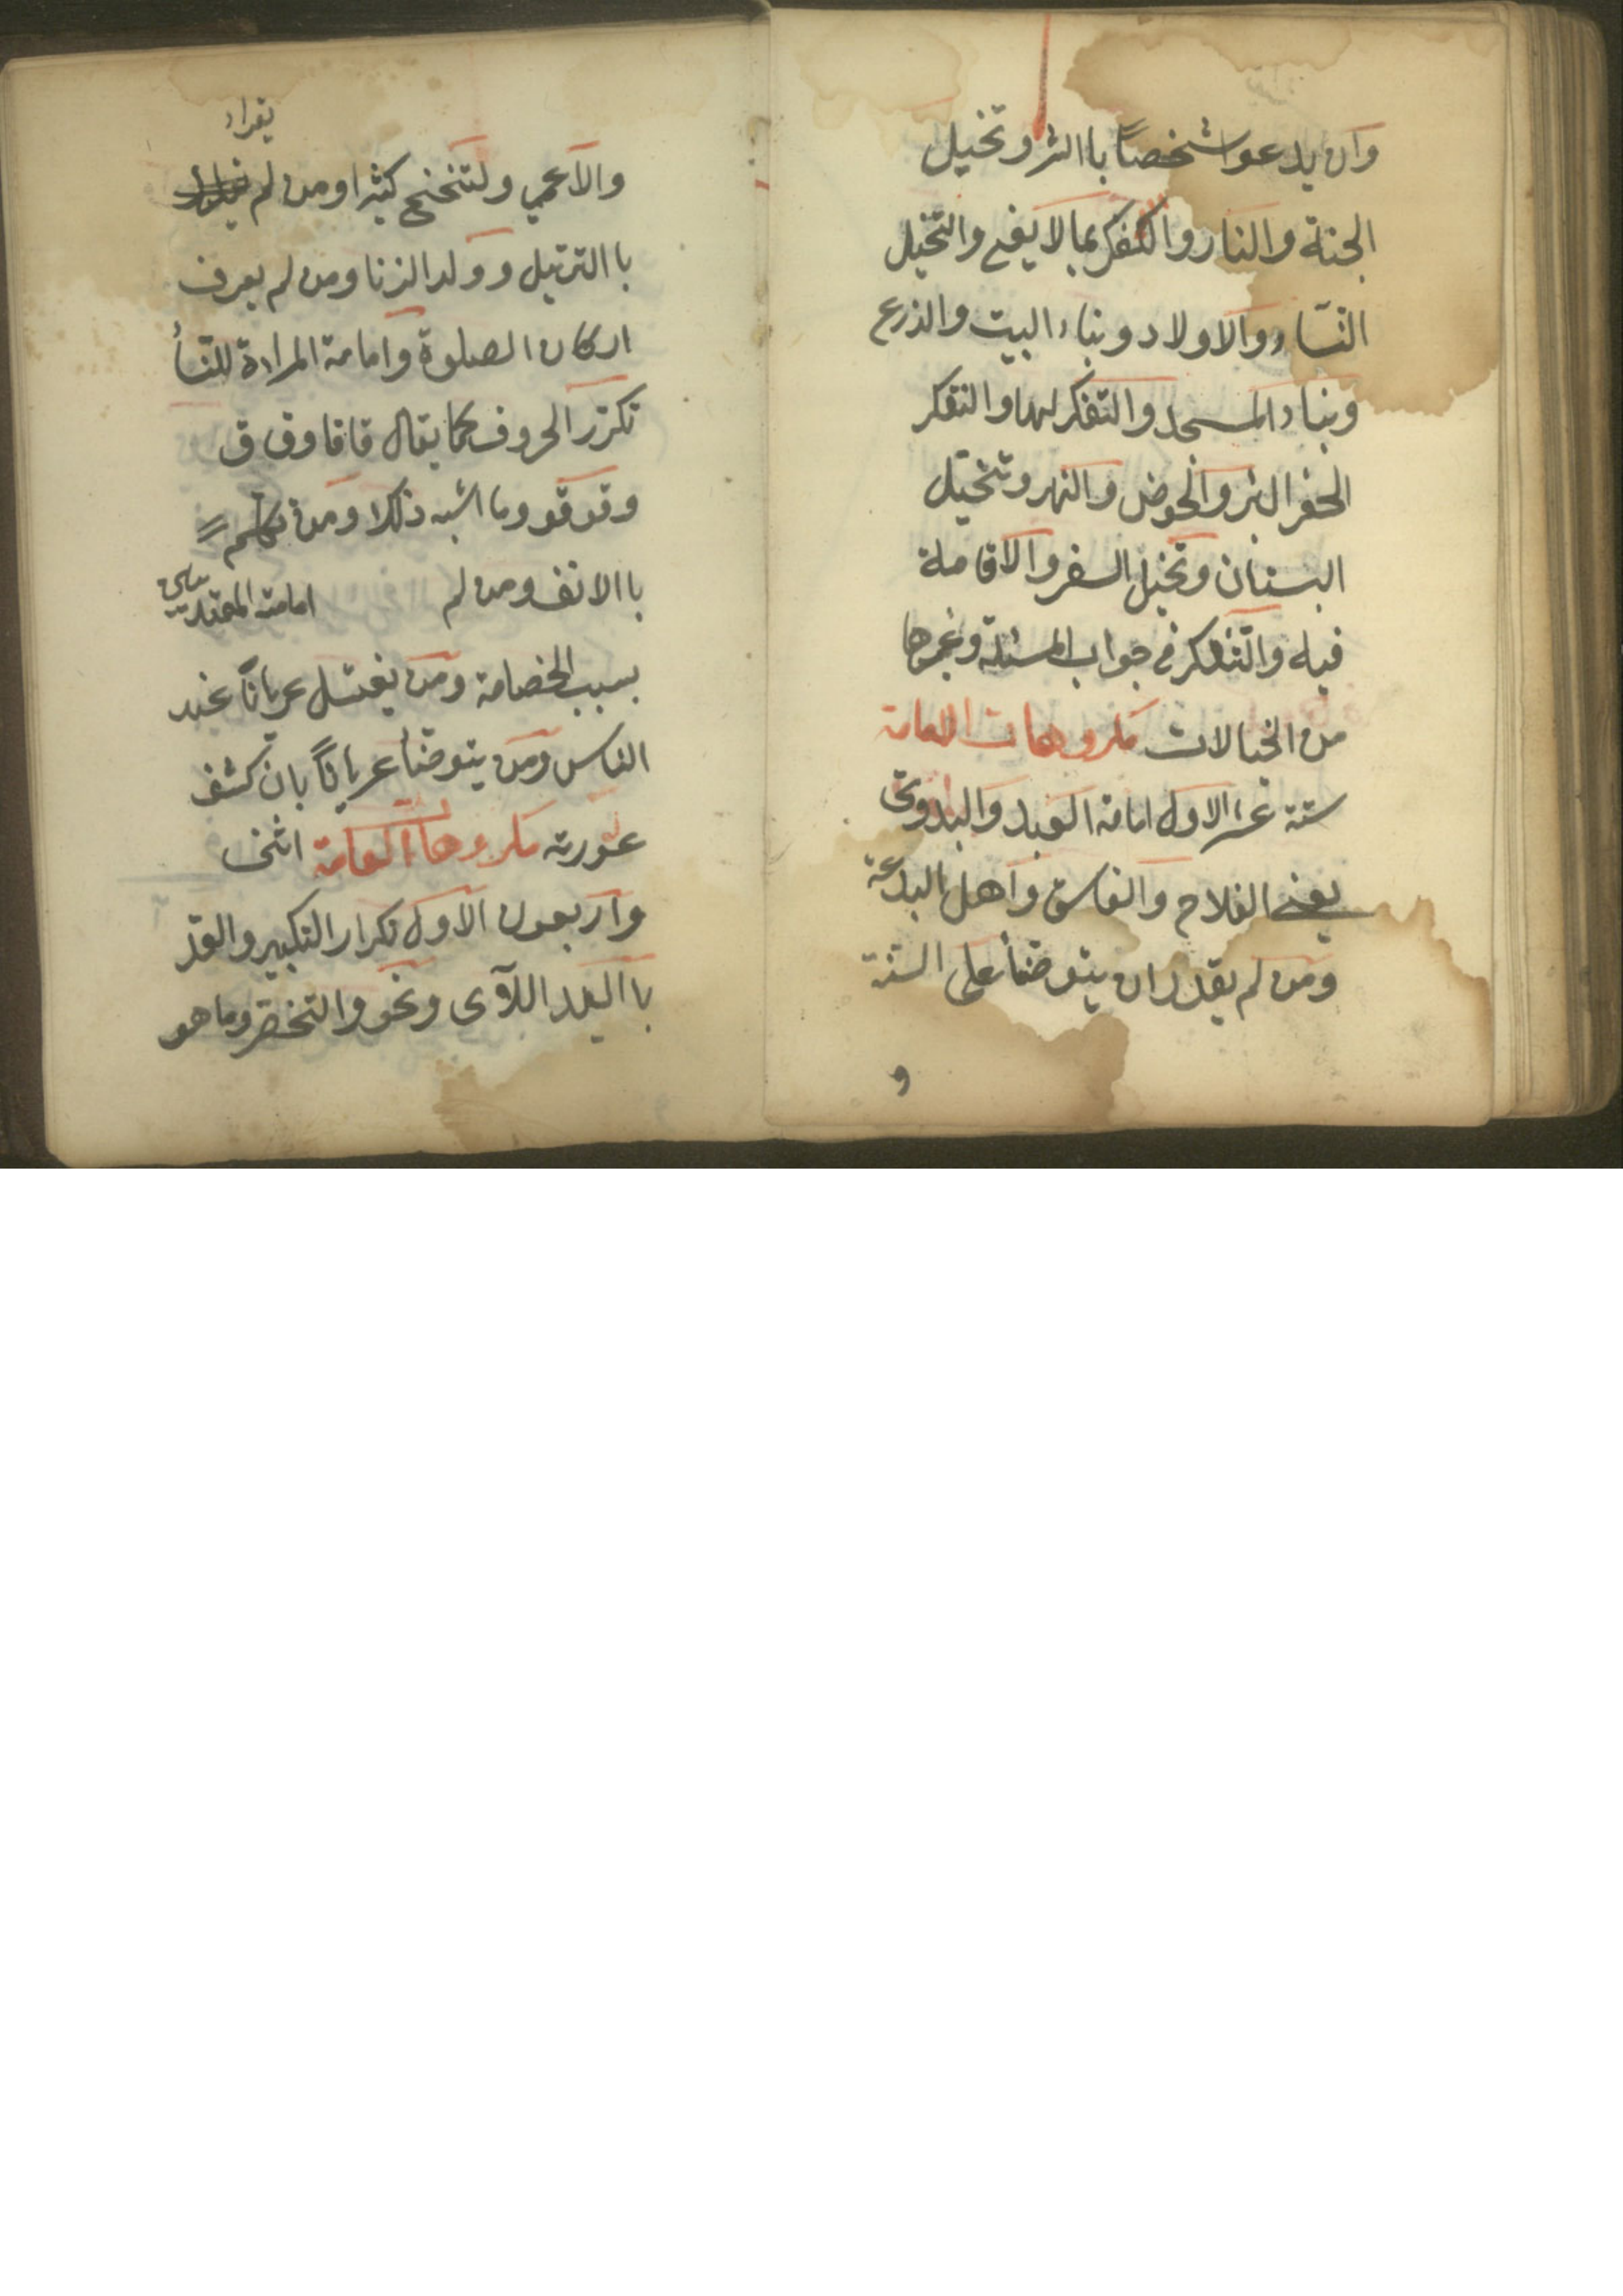 وان يدعوا شخصاً باالشر وتخيل
الجنة والنار والتفكر بما لا يفع والتخيل
النساء والاولاد وبناء البيت والذرع
وبناء المسجد والتفكر لهما والتفكر
الحفر البئر والحوض والنهر وتخيل
البستان وتخيل السفر والاقاملة
فيه والتفكر في جواب المسئلة وغيرها
من الخيالات مكروهات العامة
ستة عشر الاول امامة العبد والبدوي
يعني الفلاح والفاسق واهل البدعة
ومن لم يقدر ان يتوضأ على السنة
و
يقراء
والاعمي ولتنحنح كثيرا ومن لم
باالترتيل وولد الزنا ومن لم يعرف
اركان الصلوة وامامة المراءة للنسأ
تكرر الحروف كما يقال قاقا وق ق
وقوقو وما اشبه ذلك ومن
باالانف ومن لم امامته المقتدين
بسبب الخصامة ومن يغتسل عرياناً عند
الناس ومن يتوضأ عرياناً بان كشف
عورته مكروهات العامة اثنى
واربعون الاول تكرار التكبير والعد
باليد اللآى ونحو والتخصر وما هو